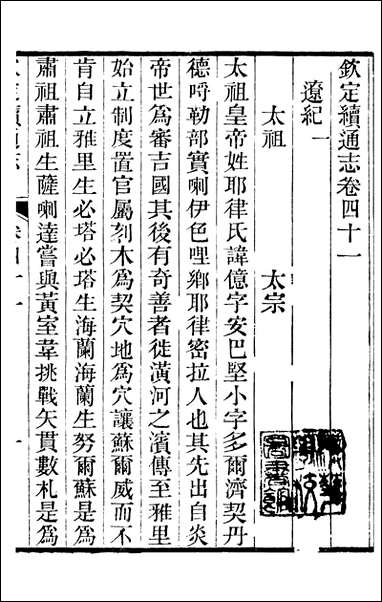 欽定續通志卷四十一
遼紀一
太祖　太宗
太祖皇帝姓耶律氏諱億字安巴堅小字多爾濟契丹
德哷勒部實喇伊色哩鄉耶律密拉人也其先出自炎
帝世爲審吉國其後有奇善者徙潢河之濱傳至雅里
始立制度置官屬刻木爲契穴地爲穴讓蘇爾威而不
肯自立雅里生必塔必塔生海蘭海蘭生努爾蘇是爲
肅祖肅祖生薩喇達嘗與黃室韋挑戰矢貫數札是爲